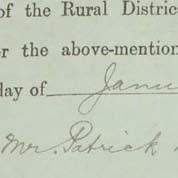 of the Rural Distric
r the above-mention
day of Janu
Mr. Patrick